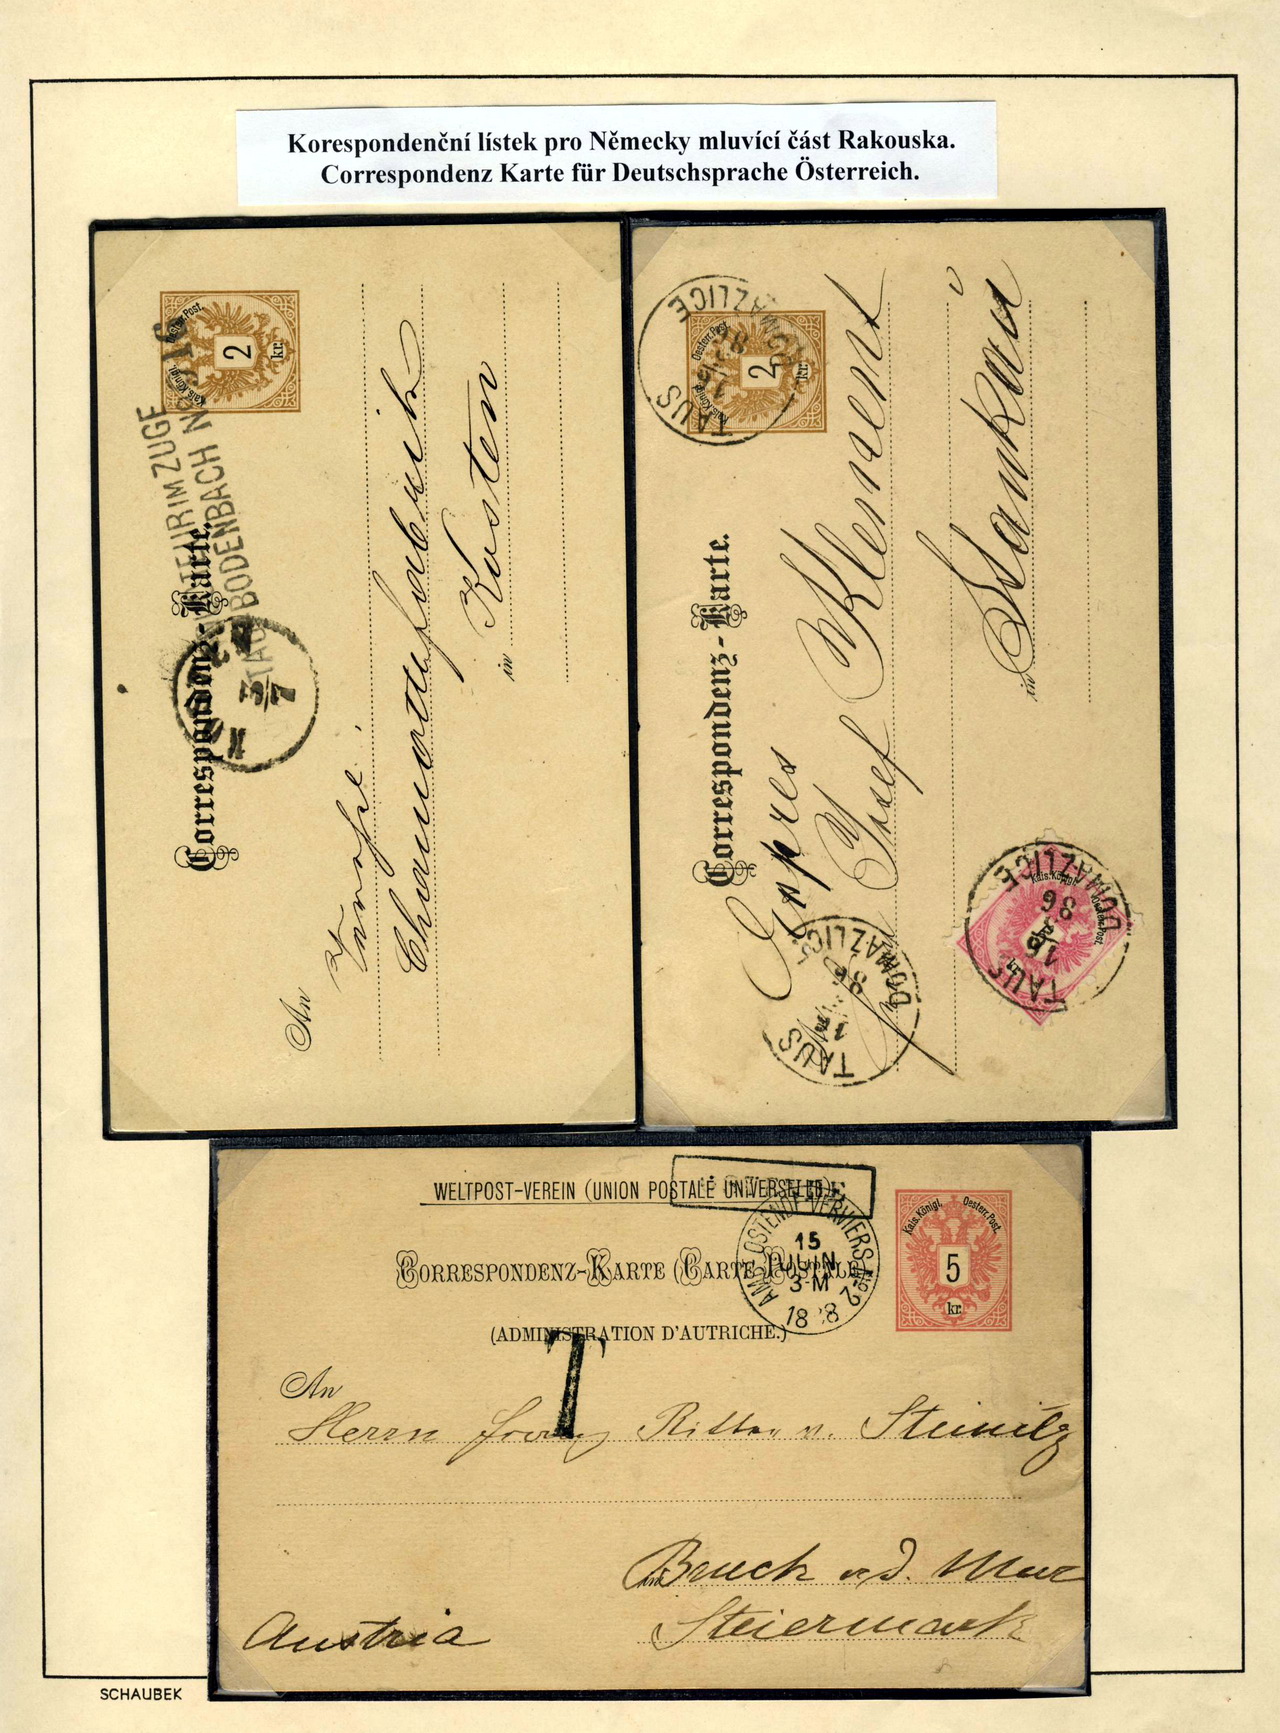 Korespondenční lístek pro Německy mluvící část Rakouska.
Correspondenz Karte für Deutschsprache Österreich.
Kais. Königl. Oesterr. Post.
2
kr.
IM ZUGE
BODENBACH No 516
Correspondenz-Karte.
3/7
An
Chamottefabrik
in Kosten
TAUS
DOMAZLICE
86
Kais. Königl. Oesterr. Post.
2
kr.
Correspondenz-Karte.
Expres
Josef Klement
in Stankau
TAUS
DOMAZLICE
86
TAUS
DOMAZLICE
16
86
Kais. Königl. Oesterr. Post.
WELTPOST-VEREIN (UNION POSTALE UNIVERSELLE)
CORRESPONDENZ-KARTE (CARTE POSTALE)
(ADMINISTRATION D'AUTRICHE.)
AMB. OSTENDE-VERVIERS No 2
15
JUIN
3-M
1888
Kais. Königl. Oesterr. Post.
5
kr.
T
An
Herrn Ritter v. Steinitz
in Bruck a. d. Mur
Steiermark
Austria
SCHAUBEK